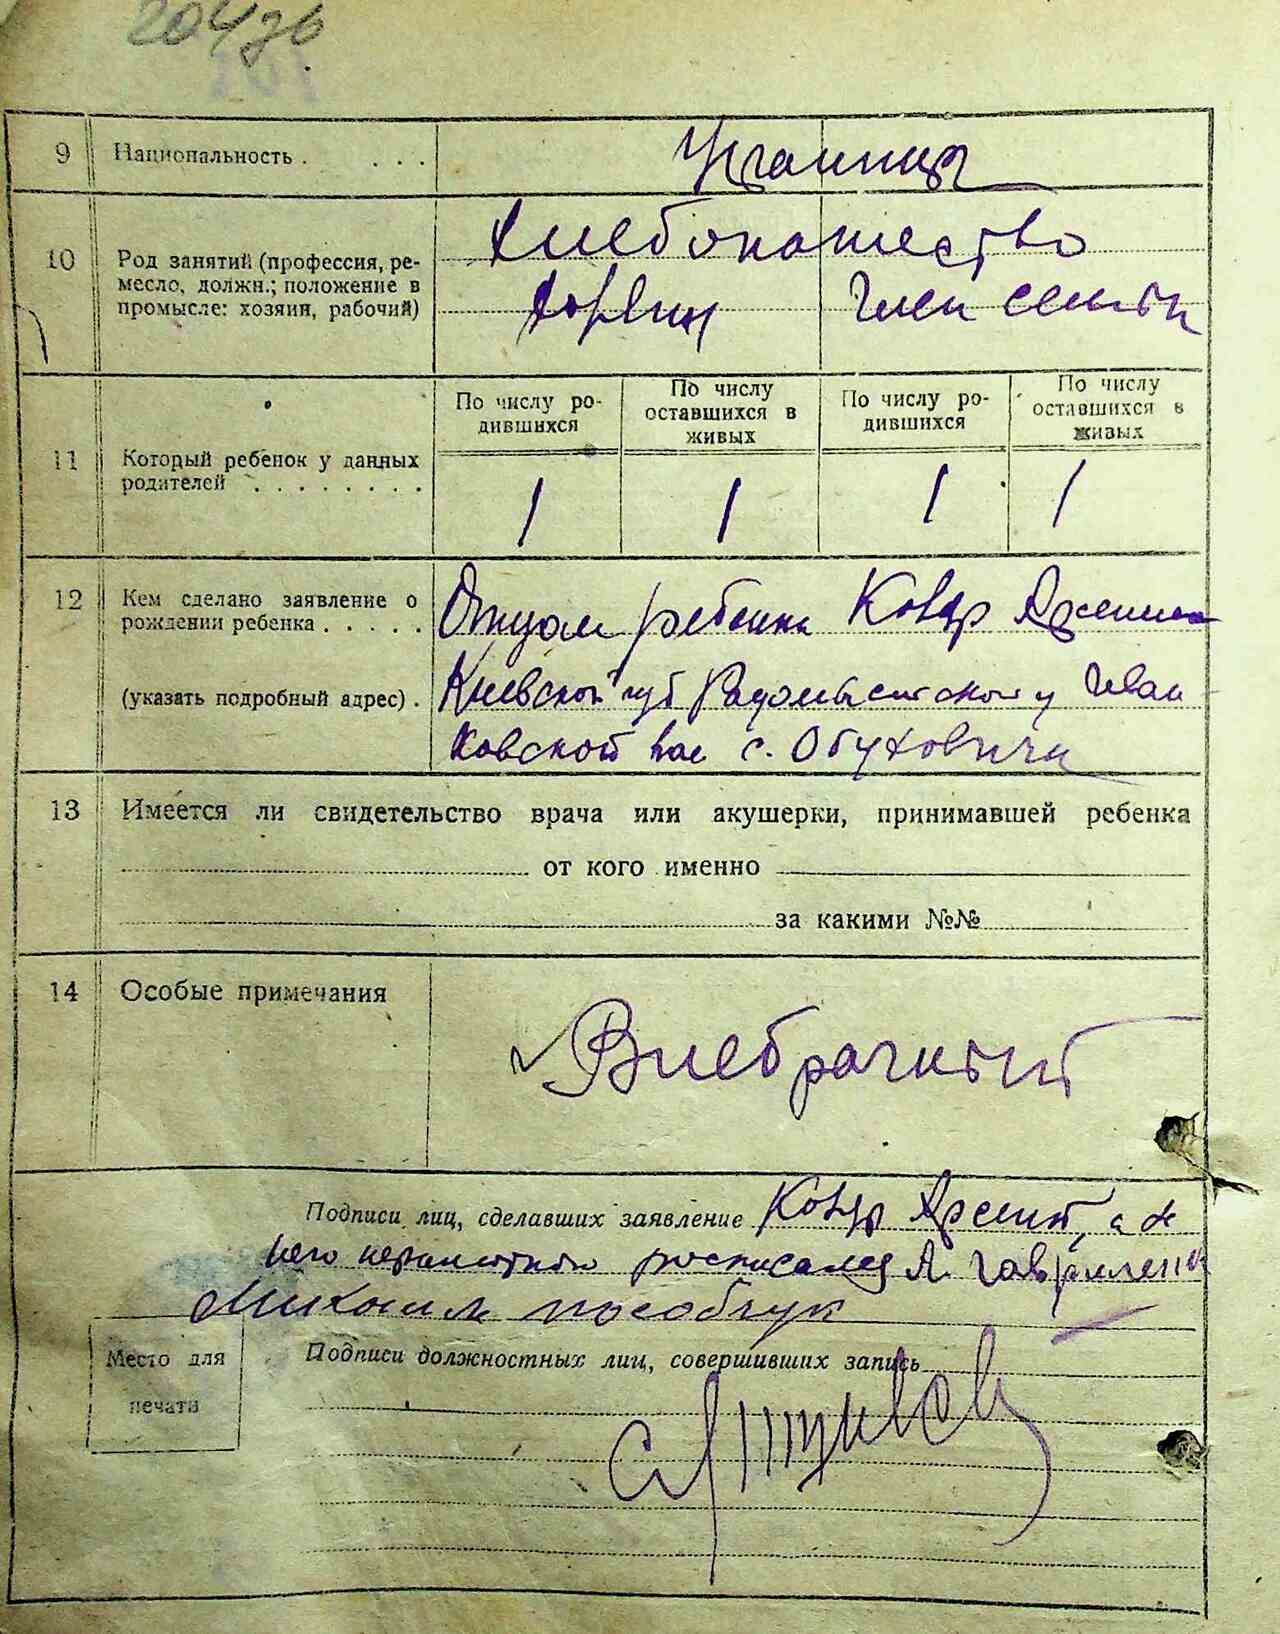 9 Национальность . . . . Украинцы
10 Род занятий (профессия, ре-
месло, должн.; положение в
промысле: хозяин, рабочий)
Хлебопашество
Хозяин член семьи
11 Который ребенок у данных
родителей . . . . . . . .
По числу ро-
дившихся
По числу
оставшихся в
живых
По числу ро-
дившихся
По числу
оставшихся в
живых
1 1 1 1
12 Кем сделано заявление о
рождении ребенка . . . . .
(указать подробный адрес) .
Отцом ребенка Ковар Арсений
Киевской губ Радомысльского у Иван
Ковской вол с. Обуховичи
13 Имеется ли свидетельство врача или акушерки, принимавшей ребенка
от кого именно
за какими №№
14 Особые примечания
Внебрачный
Подписи лиц, сделавших заявление Ковар Арсений, а за
него неграмотного росписался А. Гавриленко
Михаил
Место для
печати
Подписи должностных лиц, совершивших запись